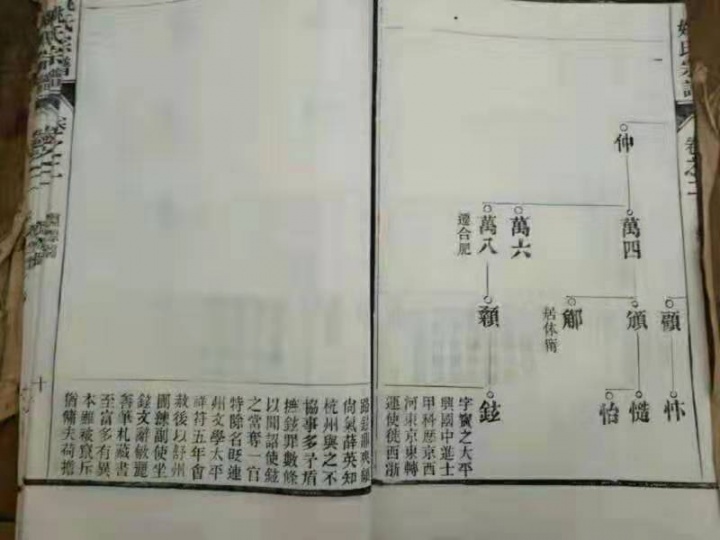 姚氏宗譜
卷之二
仲
萬四
萬六
萬八
遷合肥
顗
頎
居休甯
穎
忭
怡
鉉
字寶之太平
興國中進士
甲科歷京西
河東京東轉
運使徙西浙
尙氣薛英知
杭州與之不
協事多矛盾
摭鉉罪數條
以聞詔使鉉
之當奪一官
特除名貶連
州文學太平
祥符五年會
赦後以舒州
團練副使坐
鉉文辭敏麗
善筆札藏書
至富多有異
本雖被竄斥
猶傭夫荷擔
姚氏宗譜
十